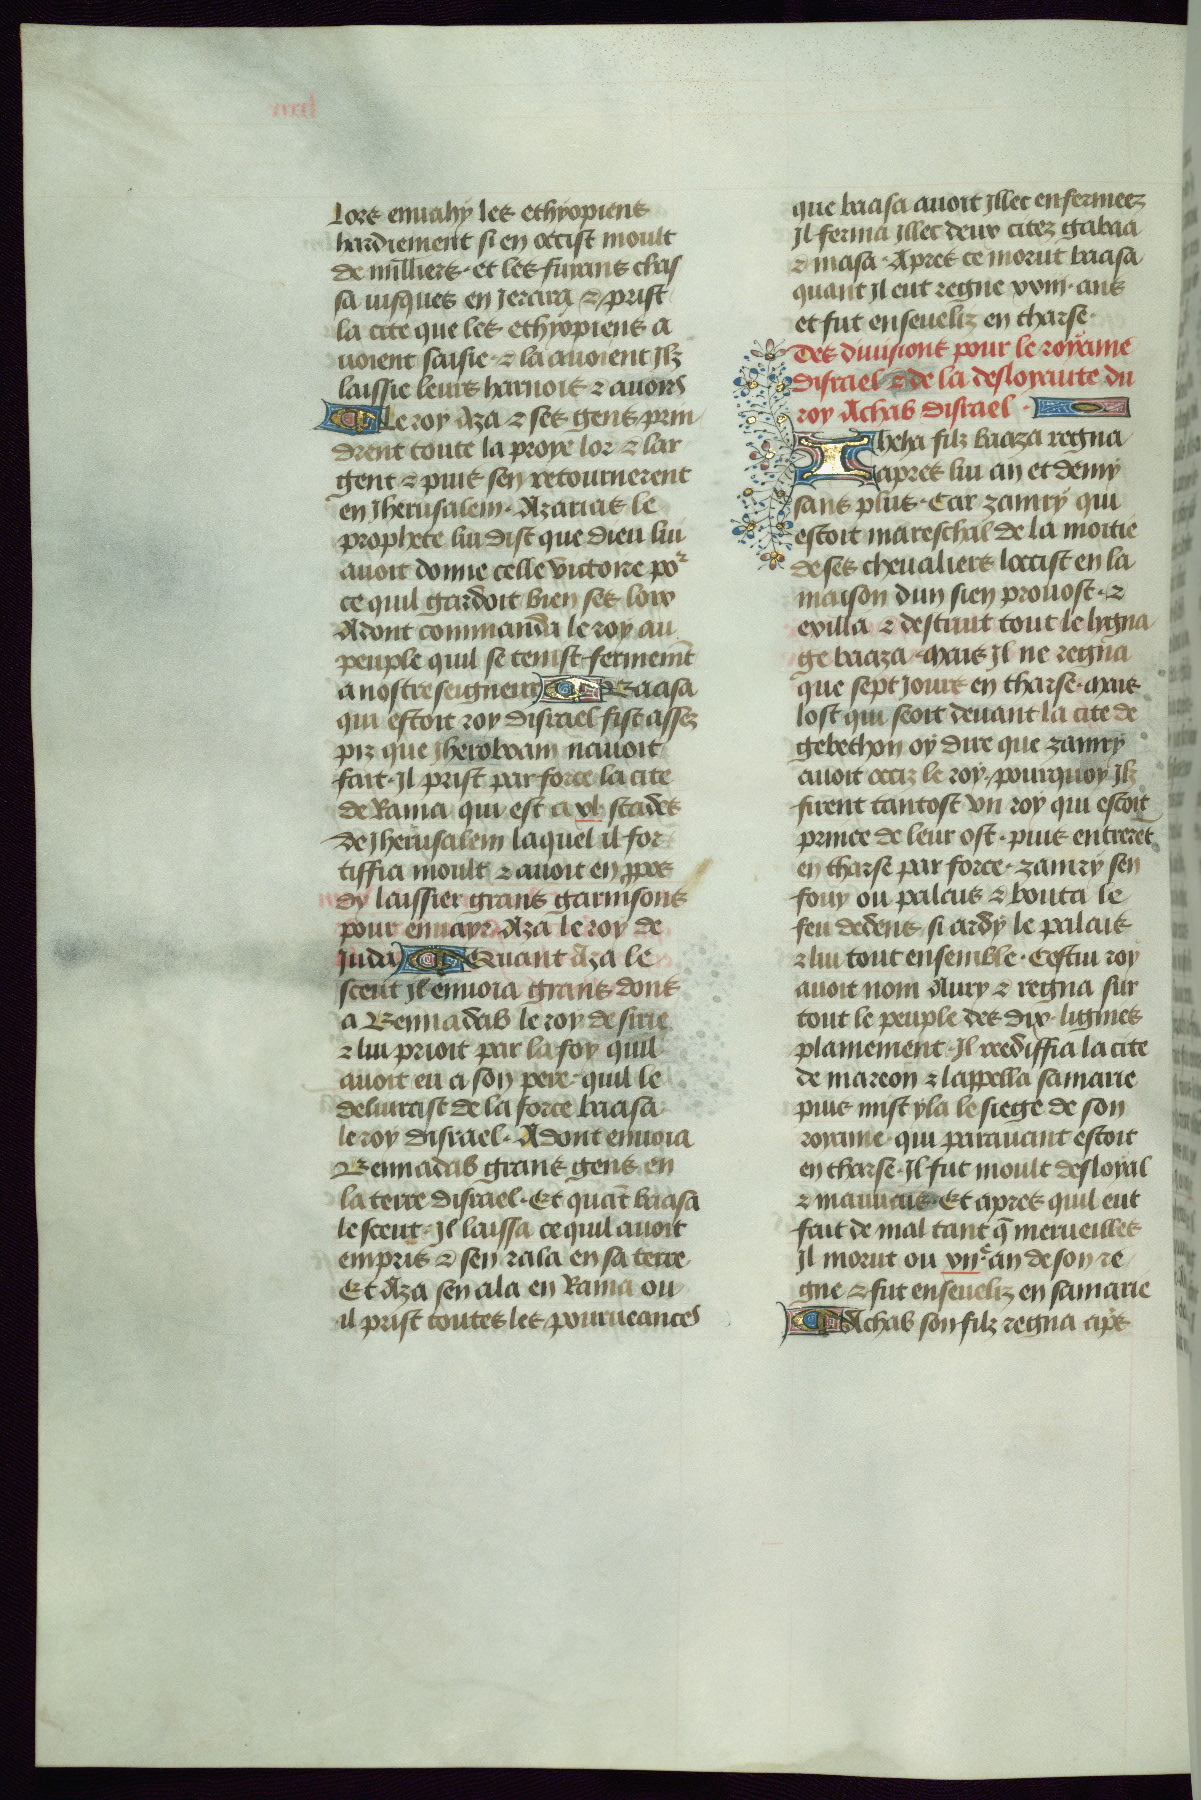 Lors enuahy les ethyopiens
hardiement si en occist moult
de milliers · et les fuians chas
sa iusques en Jerara ⁊ prist
la cite que les ethyopiens a
uoient saisie · ⁊ la auoient Jlz
laissie leurs harnois ⁊ auoirs
Le roy Aza ⁊ ses gens prin
drent toute la proye lor ⁊ lar
gent ⁊ puis sen retournerent
en Jherusalem · Azarias le
prophete luy dist que dieu luy
auoit donne celle victoire poʳ
ce quil gardoit bien ses loix
Adont commanda le roy au
peuple quil se tenist fermemẽt
a nostre seigneur Baasa
qui estoit roy disrael fist assez
piz que Jheroboam nauoit
fait · Jl prist par force la cite
de Rama qui est a xl stades
de Jherusalem laquel il for
tiffia moult ⁊ auoit en ꝓpos
dy laissier grans garnisons
pour enuayr Aza le roy de
Juda Quant Aza le
sceut Jl enuoia grans dons
a Bennadab le roy de sirie
⁊ luy prioit par la foy quil
auoit eu a son pere · quil le
deliurast de la force baasa
le roy disrael · Adont enuoia
Bennadab grans gens en
la terre disrael · Et quãt baasa
le sceut · Jl laissa ce quil auoit
empris ⁊ sen rala en sa terre
Et Aza sen ala en Rama ou
il prist toutes les pourueances
que baasa auoit Jllec enfermees
Jl ferma Jllec deux citez gabaa
⁊ masa · Apres ce morut baasa
quant Jl eut regne xxiiij · ans
et fut enseueliz en tharse ·
Des diuisions pour le royame
disrael ⁊ de la desloyaute du
roy Achab disrael ·
Theha filz baaza regna
apres luy an et demy
sans plus · Car zamry qui
estoit mareschal de la moitie
de ses cheualiers loccist en la
maison dun sien prouost · ⁊
exilla ⁊ destruit tout le lygna
ge baaza · Mais Jl ne regna
que sept Jours en tharse · Mais
lost qui seoit deuant la cite de
gebethon oy dire que zamry
auoit occiz le roy · pourquoy Jlz
firent tantost vn roy qui estoit
prince de leur ost · puis entrerẽt
en tharse par force · zamry sen
fouy ou palais ⁊ bouta le
feu dedens si ardy le palais
⁊ luy tout ensemble · Cestui roy
auoit nom Aury ⁊ regna sur
tout le peuple des dix lignies
plainement · Jl reediffia la cite
de mareon ⁊ lappella samarie
puis mist yla le siege de son
royame qui parauant estoit
en tharse · Jl fut moult desloyal
⁊ mauuais · Et apres quil eut
fait de mal tant q̃ merueilles
Jl morut ou vii.ᵉ an de son re
gne ⁊ fut enseueliz en samarie
Achab son filz regna apˢ